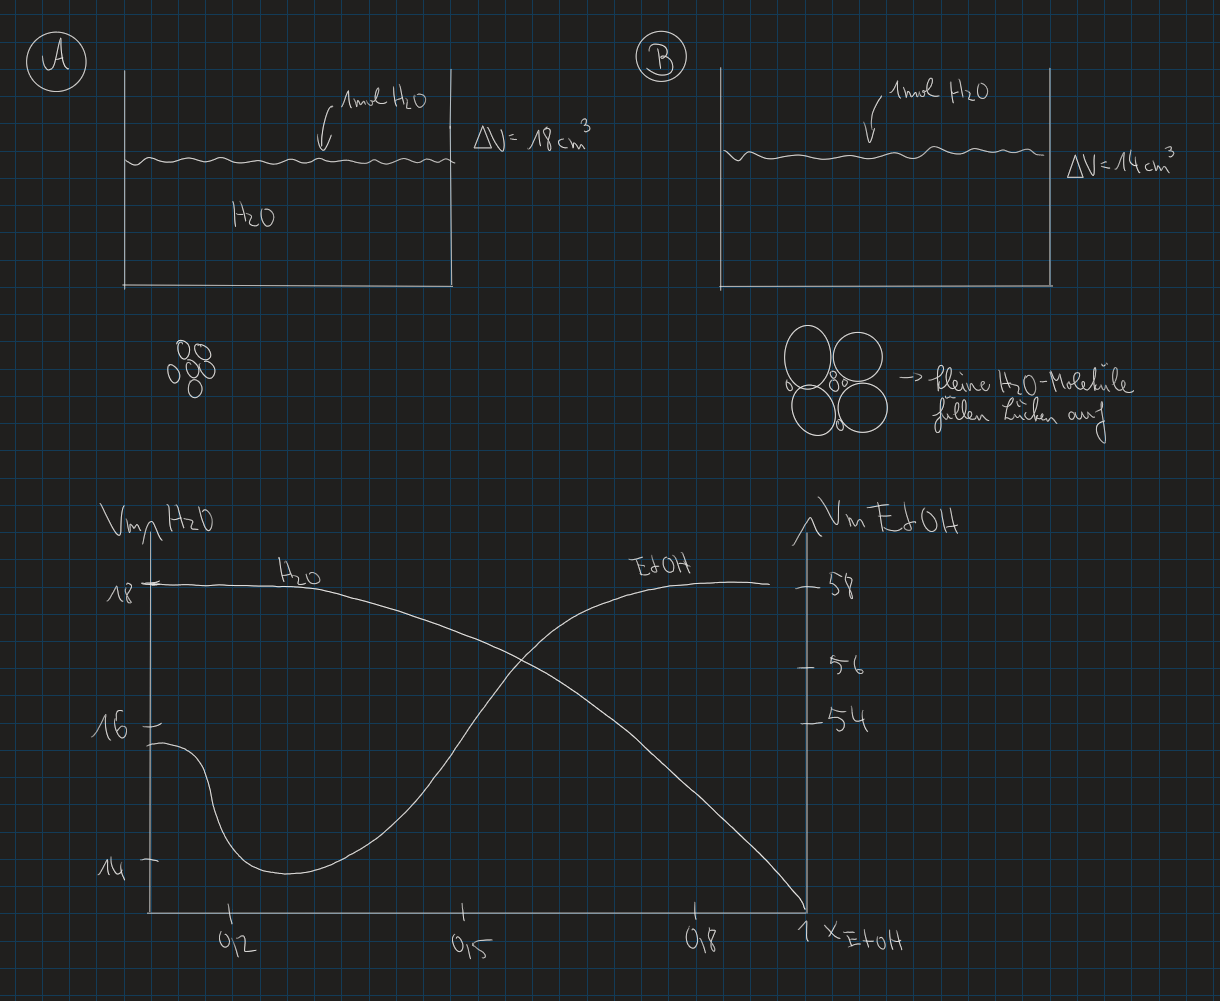 A
1mol H₂O
ΔV = 18 cm³
H₂O
B
1mol H₂O
ΔV = 14 cm³
→ kleine H₂O-Moleküle
füllen Lücken auf
Vm H₂O
Vm EtOH
H₂O
EtOH
18
58
56
16
54
14
0,2
0,5
0,8
1
x EtOH